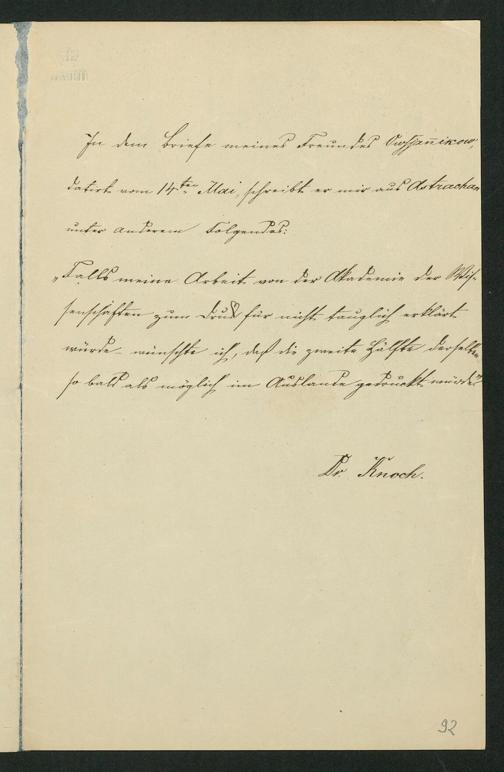 In dem Briefe meines Freundes Owsjannikow,
datirt vom 14ten Mai, schreibt er mir aus Astrachan
unter Anderem Folgendes:
„Falls meine Arbeit von der Akademie der Wis-
senschaften zum Druck für nicht tauglich erklärt
würde wünschte ich, daß die zweite Hälfte derselben
so bald als möglich im Auslande gedruckt würde.“
Dr. Knoch.
92